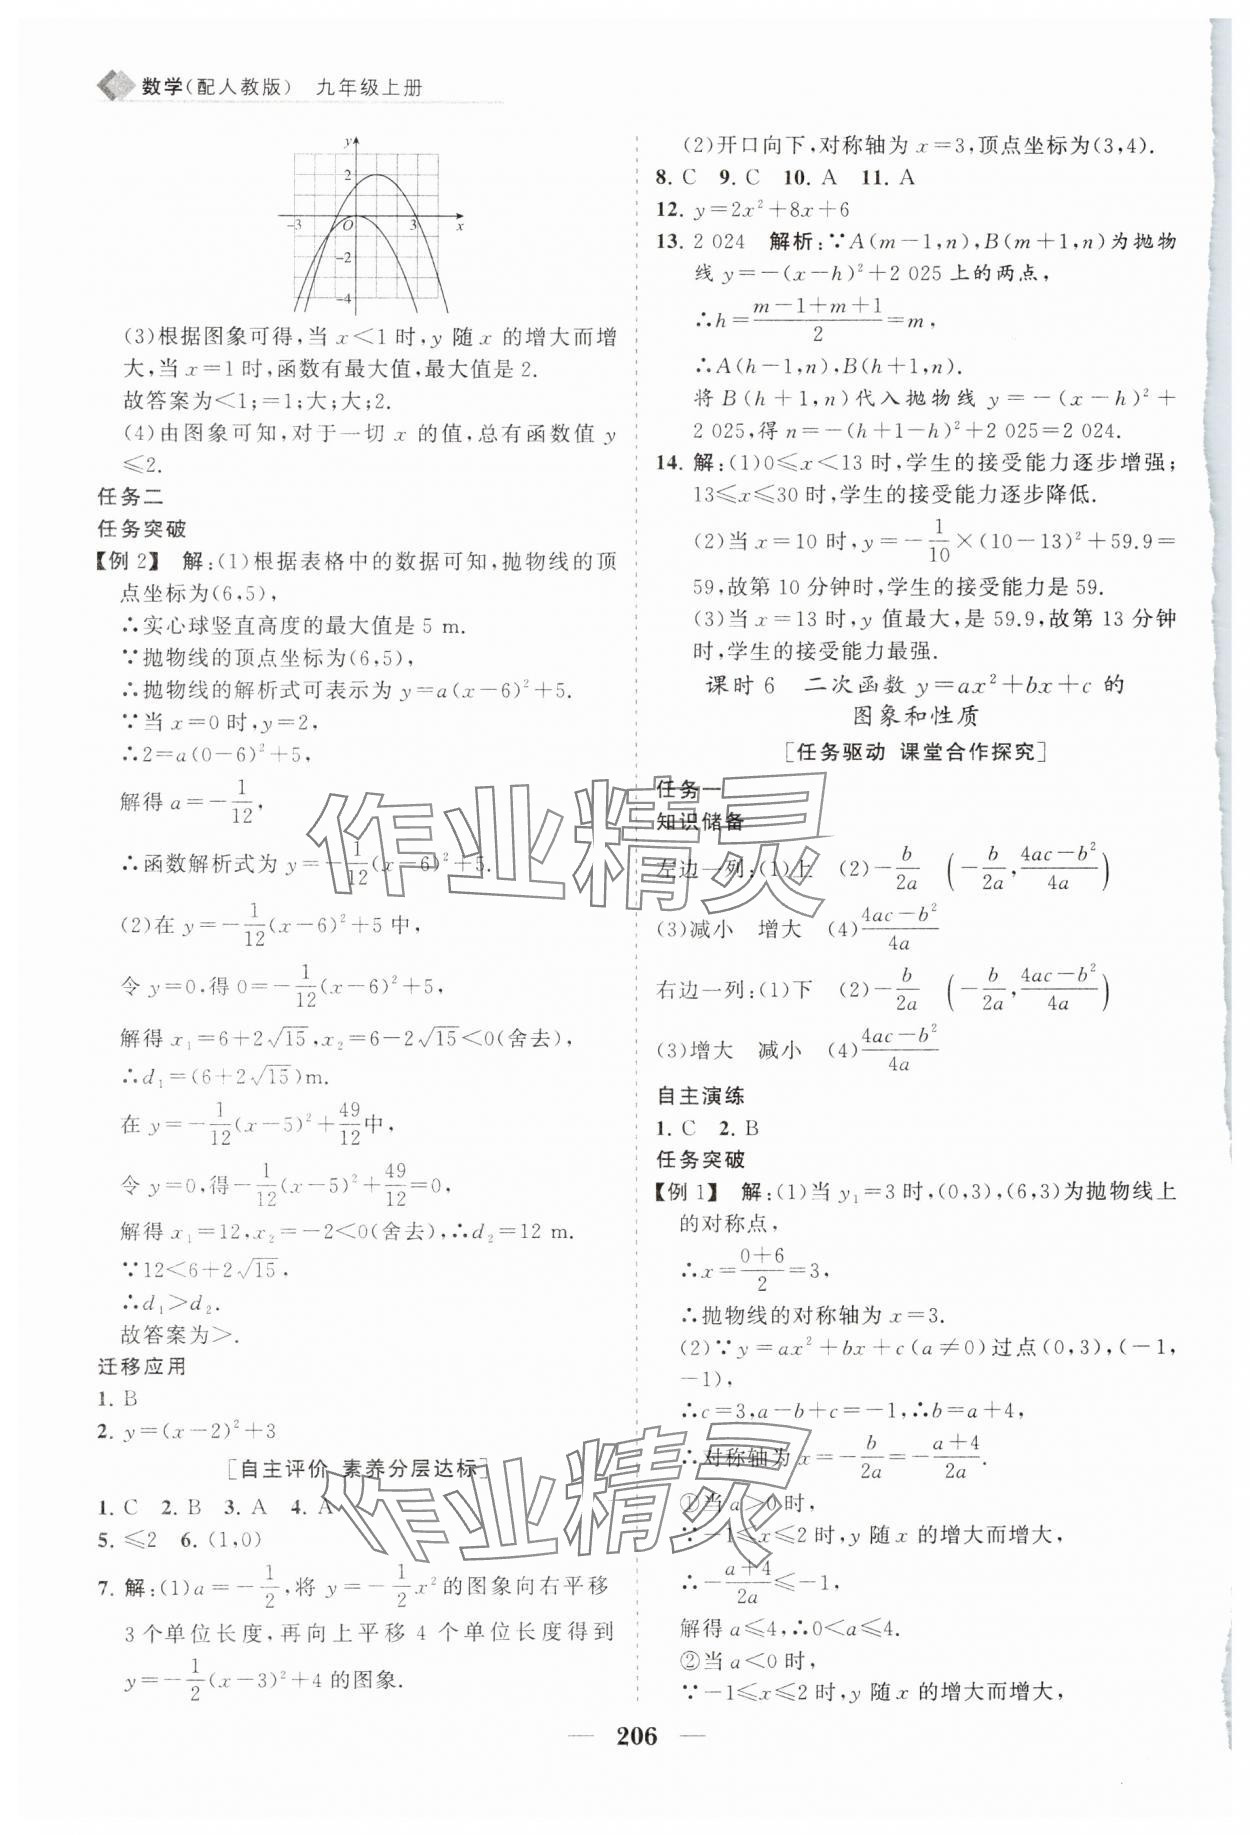 数学(配人教版) 九年级上册
y
2
-3 O 3 x
-2
-4
(3)根据图象可得,当 x<1 时,y 随 x 的增大而增
大,当 x=1 时,函数有最大值,最大值是 2.
故答案为<1;=1;大;大;2.
(4)由图象可知,对于一切 x 的值,总有函数值 y
≤2.
任务二
任务突破
【例 2】 解:(1)根据表格中的数据可知,抛物线的顶
点坐标为(6,5),
∴实心球竖直高度的最大值是 5 m.
∵抛物线的顶点坐标为(6,5),
∴抛物线的解析式可表示为 y=a(x-6)²+5.
∵当 x=0 时,y=2,
∴2=a(0-6)²+5,
解得 a=-1/12,
∴函数解析式为 y=-1/12(x-6)²+5.
(2)在 y=-1/12(x-6)²+5 中,
令 y=0,得 0=-1/12(x-6)²+5,
解得 x₁=6+2√15,x₂=6-2√15<0(舍去),
∴d₁=(6+2√15)m.
在 y=-1/12(x-5)²+49/12中,
令 y=0,得-1/12(x-5)²+49/12=0,
解得 x₁=12,x₂=-2<0(舍去),∴d₂=12 m.
∵12<6+2√15,
∴d₁>d₂.
故答案为>.
迁移应用
1. B
2. y=(x-2)²+3
[自主评价 素养分层达标]
1. C 2. B 3. A 4. A
5. ≤2 6. (1,0)
7. 解:(1)a=-1/2,将 y=-1/2x²的图象向右平移
3个单位长度,再向上平移 4 个单位长度得到
y=-1/2(x-3)²+4 的图象.
(2)开口向下,对称轴为 x=3,顶点坐标为(3,4).
8. C 9. C 10. A 11. A
12. y=2x²+8x+6
13. 2 024 解析:∵A(m-1,n),B(m+1,n)为抛物
线 y=-(x-h)²+2 025 上的两点,
∴h=(m-1+m+1)/2=m,
∴A(h-1,n),B(h+1,n).
将 B(h+1,n)代入抛物线 y=-(x-h)²+
2 025,得 n=-(h+1-h)²+2 025=2 024.
14. 解:(1)0≤x<13 时,学生的接受能力逐步增强;
13≤x≤30 时,学生的接受能力逐步降低.
(2)当 x=10 时,y=-1/10×(10-13)²+59.9=
59,故第 10 分钟时,学生的接受能力是 59.
(3)当 x=13 时,y 值最大,是 59.9,故第 13 分钟
时,学生的接受能力最强.
课时 6 二次函数 y=ax²+bx+c 的
图象和性质
[任务驱动 课堂合作探究]
任务一
知识储备
左边一列:(1)上 (2)-b/2a (-b/2a,(4ac-b²)/4a)
(3)减小 增大 (4)(4ac-b²)/4a
右边一列:(1)下 (2)-b/2a (-b/2a,(4ac-b²)/4a)
(3)增大 减小 (4)(4ac-b²)/4a
自主演练
1. C 2. B
任务突破
【例 1】 解:(1)当 y₁=3 时,(0,3),(6,3)为抛物线上
的对称点,
∴x=(0+6)/2=3,
∴抛物线的对称轴为 x=3.
(2)∵y=ax²+bx+c(a≠0)过点(0,3),(-1,
-1),
∴c=3,a-b+c=-1,∴b=a+4,
∴对称轴为 x=-b/2a=-(a+4)/2a.
①当 a>0 时,
∵-1≤x≤2 时,y 随 x 的增大而增大,
∴-(a+4)/2a≤-1,
解得 a≤4,∴0<a≤4.
②当 a<0 时,
∵-1≤x≤2 时,y 随 x 的增大而增大,
— 206 —
作业精灵
作业精灵